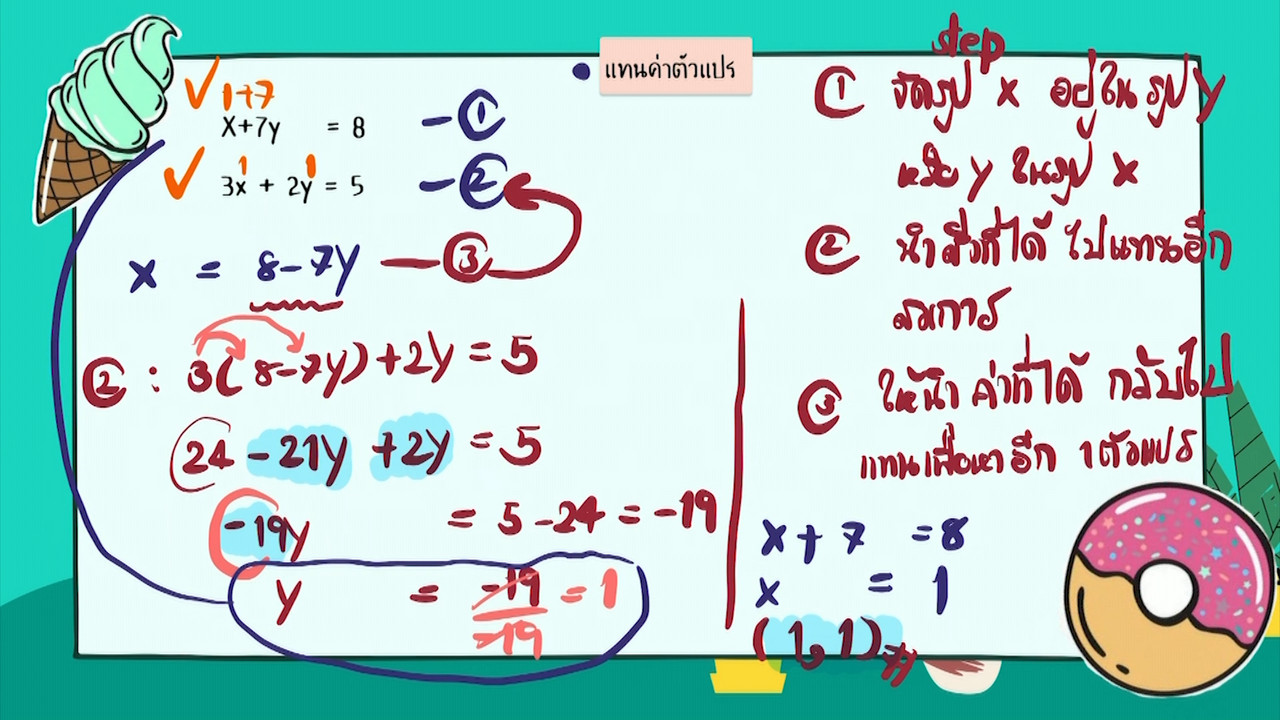 แทนค่าตัวแปร
1+7
x+7y = 8 -①
1 1
3x + 2y = 5 -②
x = 8-7y -③
②: 3(8-7y)+2y = 5
24 -21y +2y = 5
-19y = 5-24 = -19
y = -19/-19 = 1
step
① จัดรูป x อยู่ในรูป y
หรือ y ในรูป x
② นำสิ่งที่ได้ ไปแทนอีก
สมการ
③ ให้นำ ค่าที่ได้ กลับไป
แทนเพื่อหาอีก 1 ตัวแปร
x + 7 = 8
x = 1
(1,1)#